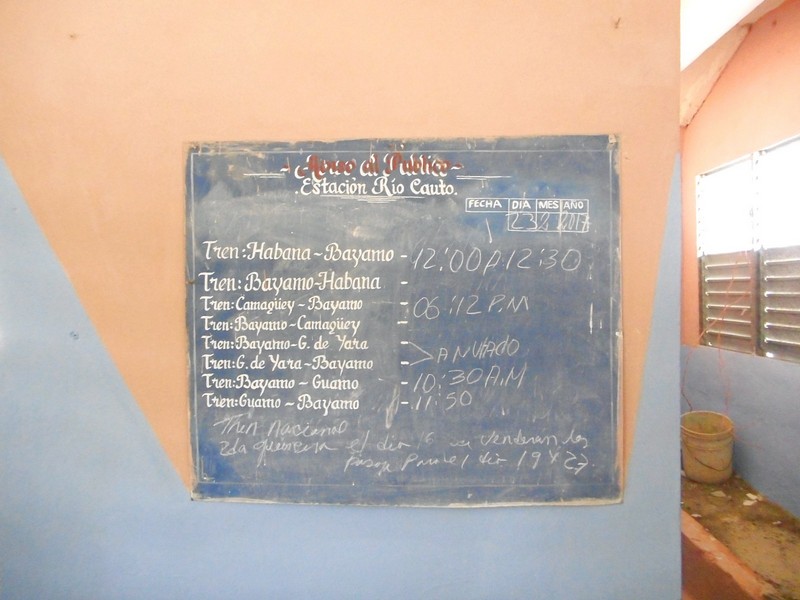 Aviso al Público
Estación Río Cauto.
FECHA DIA MES AÑO
23 2 2017
Tren: Habana - Bayamo - 12:00 A 12:30
Tren: Bayamo - Habana -
Tren: Camagüey - Bayamo - 06:12 P.M
Tren: Bayamo - Camagüey -
Tren: Bayamo - G. de Yara - > ANULADO
Tren: G. de Yara - Bayamo -
Tren: Bayamo - Guamo - 10:30 A.M
Tren: Guamo - Bayamo - 11:50
Tren Nacional
2da quincena el dia 16 se venderan los
Pasaje Para el dia 19 y 27.